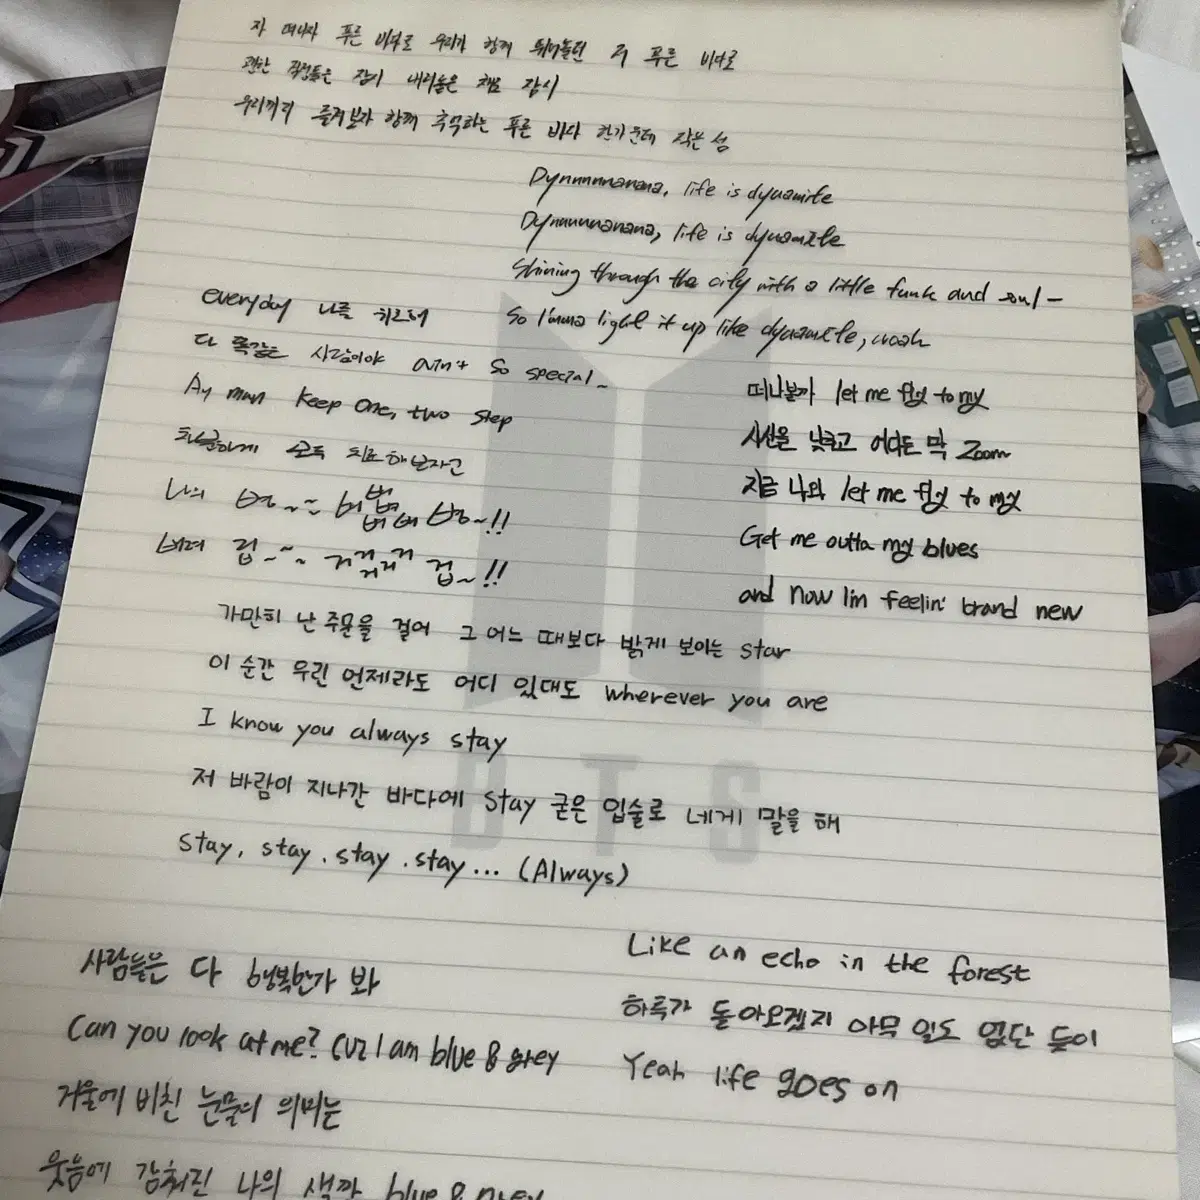 자 떠나자 푸른 바다로 우리가 함께 뛰어놀던 저 푸른 바다로
괜한 걱정들은 잠시 내려놓은 채로 잠시
우리끼리 즐겨보자 함께 추억하는 푸른 바다 한가운데 작은 섬
Dynnnnnanana, life is dynamite
Dynnnnnanana, life is dynamite
Shining through the city with a little funk and soul -
So I'mma light it up like dynamite, woah
everyday 나를 위로해
다 똑같은 사람이야 ain't so special ~
Ay man keep one, two step
차분하게 모두 치료해보자고
나의 병~~~ 버버벼벼버버 병~!!
버려 겁~~~ 거거거거거거 겁~!!
떠나볼까 let me fly to my
시선을 낮추고 어디든 막 Zoom
지금 나와 let me fly to my
Get me outta my blues
and now I'm feelin' brand new
가만히 난 주문을 걸어 그 어느 때보다 밝게 보이는 star
이 순간 우린 언제라도 어디 있대도 wherever you are
I know you always stay
저 바람이 지나간 바다에 stay 굳은 입술로 네게 말을 해
stay, stay. stay. stay... (Always)
BTS
사람들은 다 행복한가 봐
Can you look at me? cuz I am blue & grey
거울에 비친 눈물의 의미는
웃음에 감춰진 나의 색깔 blue & grey
Like an echo in the forest
하루가 돌아오겠지 아무 일도 없단 듯이
Yeah life goes on